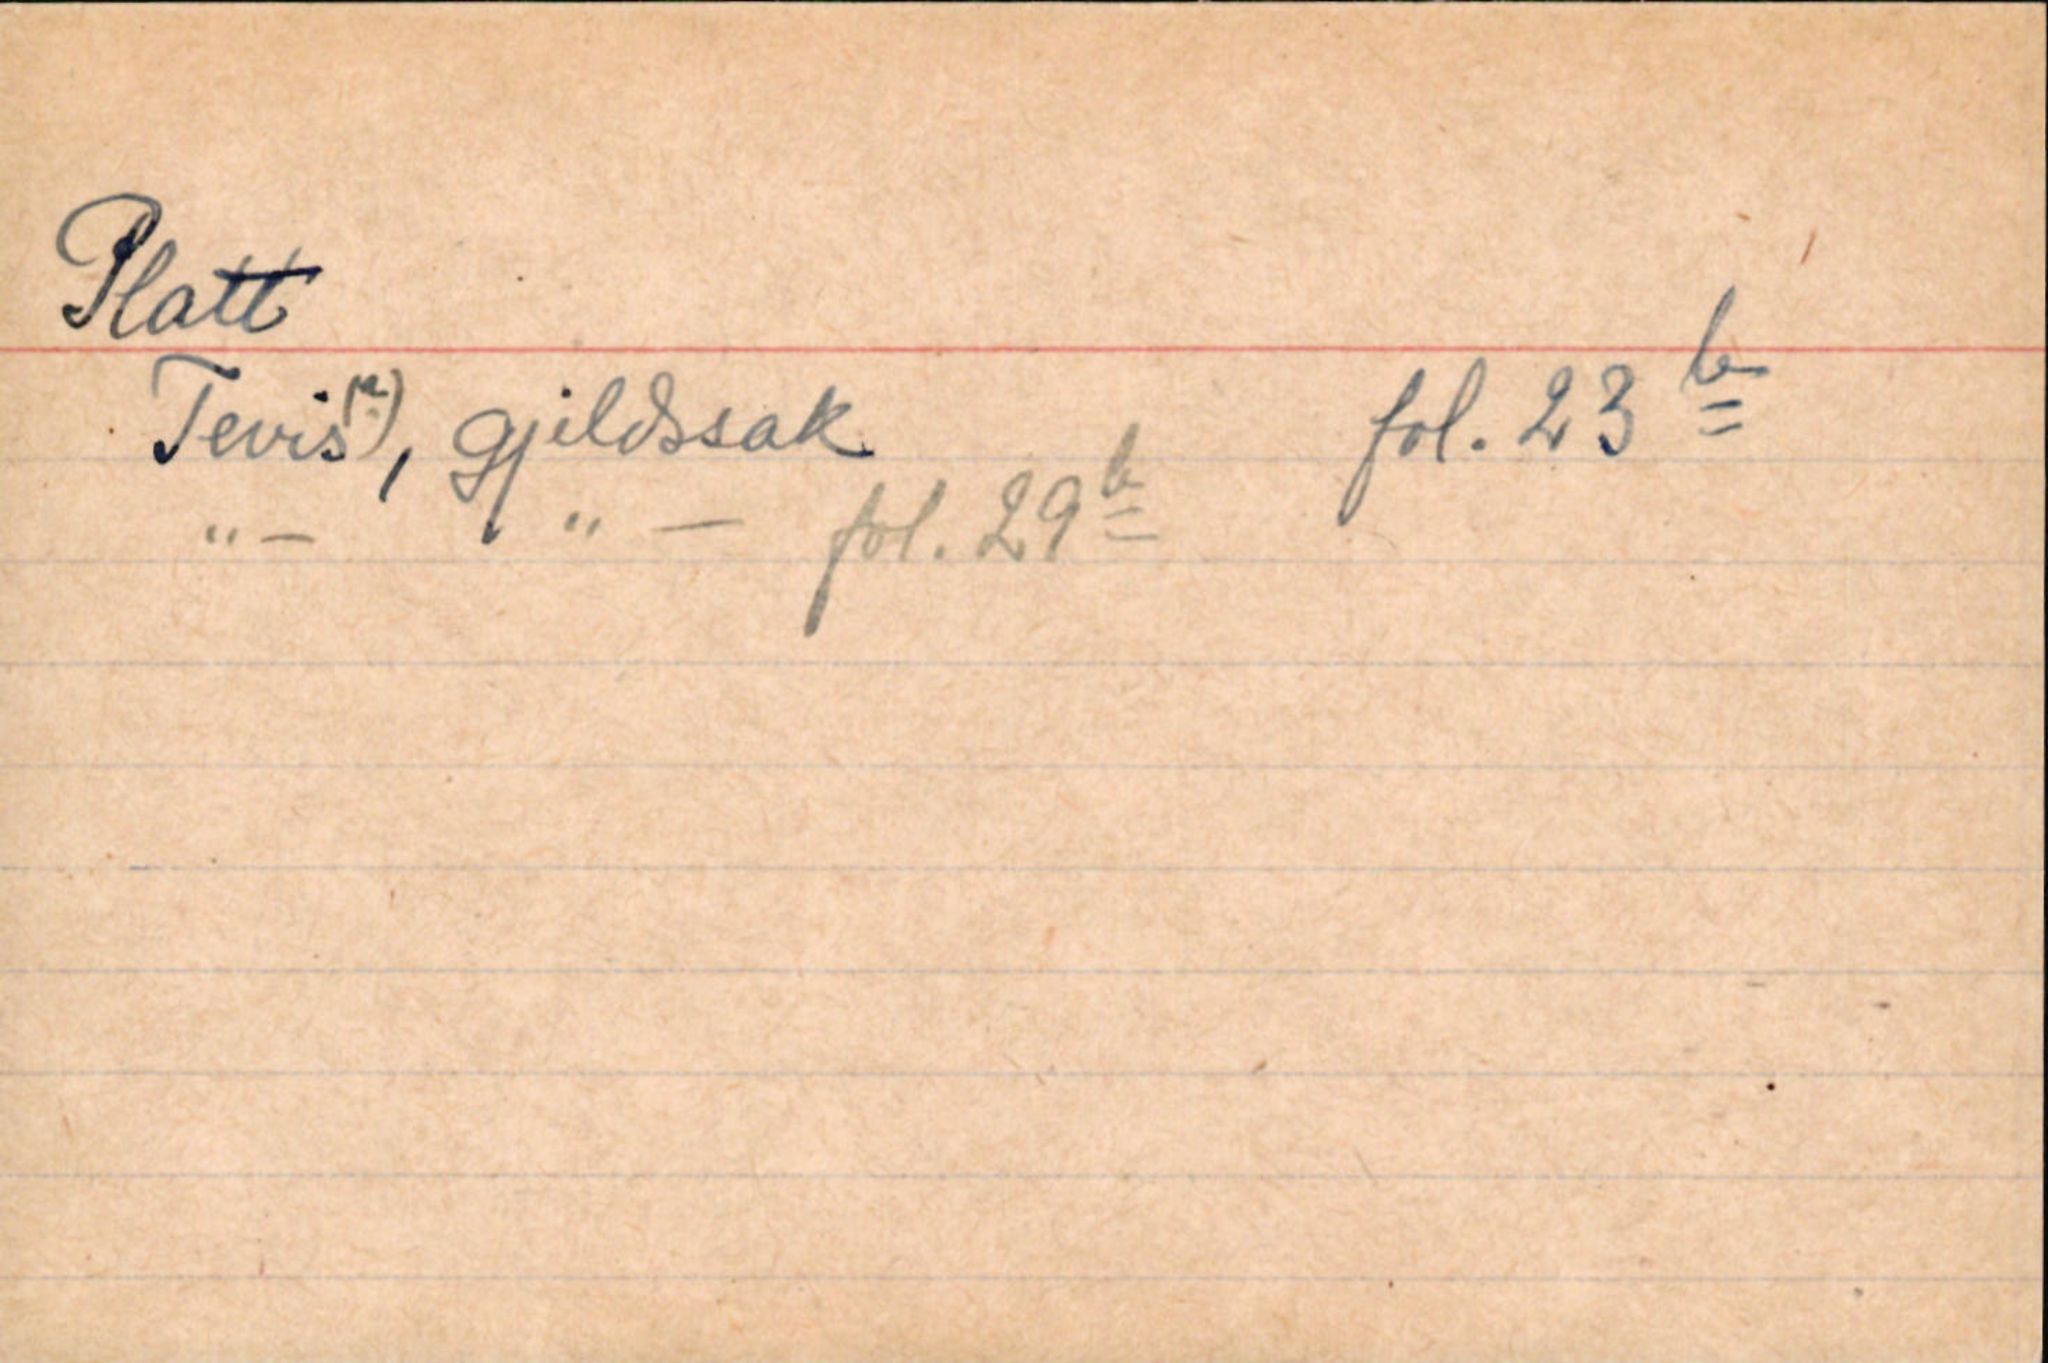 Platt
Tevis(?), gjeldssak fol. 23 b
"— " — fol. 29 b